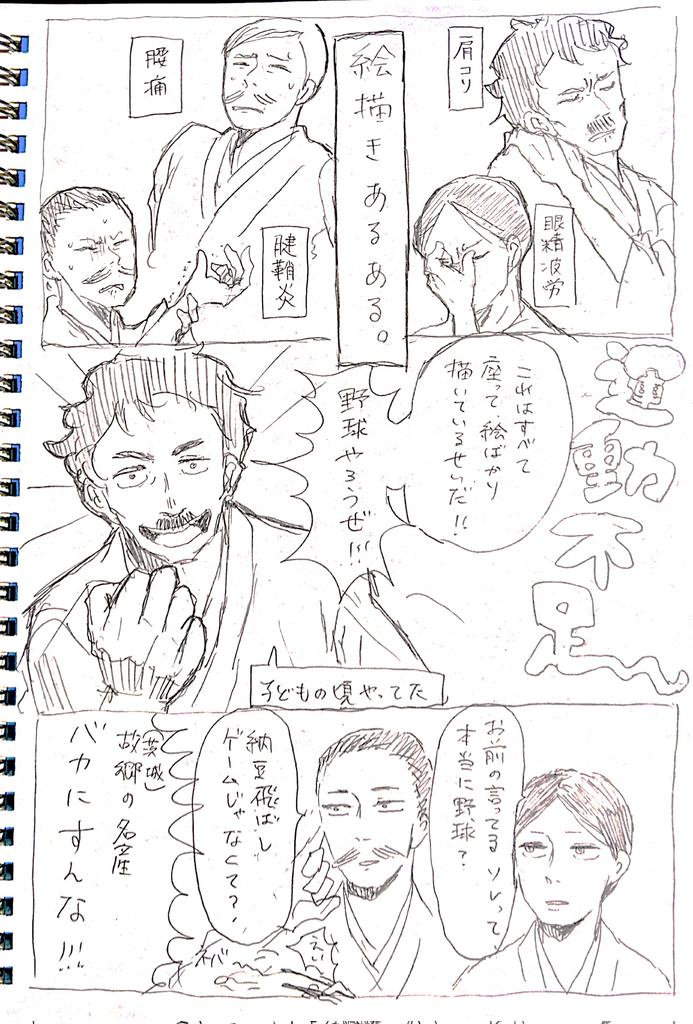 絵描きあるある。
肩コリ
眼精疲労
腰痛
腱鞘炎
運動不足
これはすべて
座って絵ばかり
描いているせいだ!!
野球やろうぜ!!!
子どもの頃やってた
お前の言ってるソレって、
本当に野球?
納豆飛ばし
ゲームじゃなくて?
ネバ〜
(茨城)
故郷の名産
バカにすんな!!!